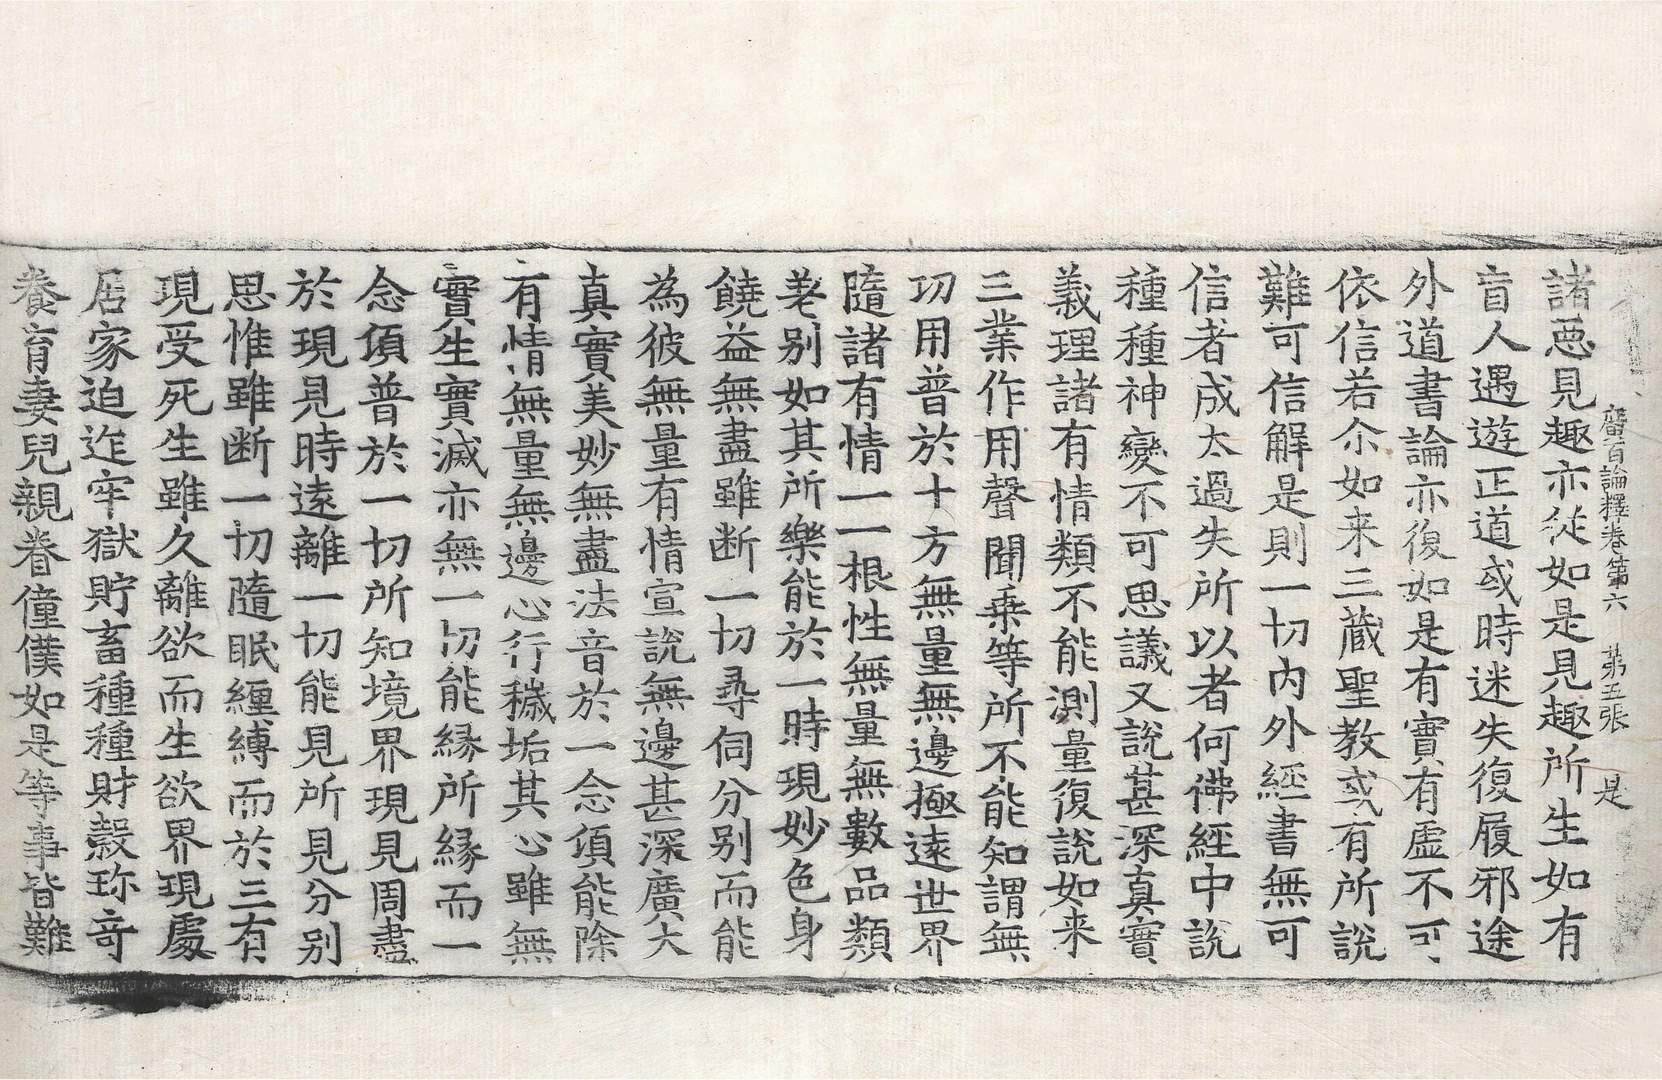 廣百論釋卷第六　第五張　是
諸惡見趣亦從如是見趣所生如有
盲人遇遊正道或時迷失復履邪途
外道書論亦復如是有實有虛不可
依信若尒如来三藏聖教或有所說
難可信解是則一切内外經書無可
信者成太過失所以者何佛經中說
種種神變不可思議又說甚深真實
義理諸有情類不能測量復說如来
三業作用聲聞乗等所不能知謂無
功用普於十方無量無邊極遠世界
隨諸有情一一根性無量無數品類
差别如其所樂能於一時現妙色身
饒益無盡雖断一切尋伺分别而能
為彼無量有情宣說無邊甚深廣大
真實美妙無盡法音於一念頃能除
有情無量無邊心行穢垢其心雖無
實生實滅亦無一切能緣所緣而一
念頃普於一切所知境界現見周盡
於現見時遠離一切能見所見分别
思惟雖断一切隨眠纏縛而於三有
現受死生雖久離欲而生欲界現處
居家迫迮牢獄貯畜種種財穀珎竒
養育妻兒親眷僮僕如是等事皆難